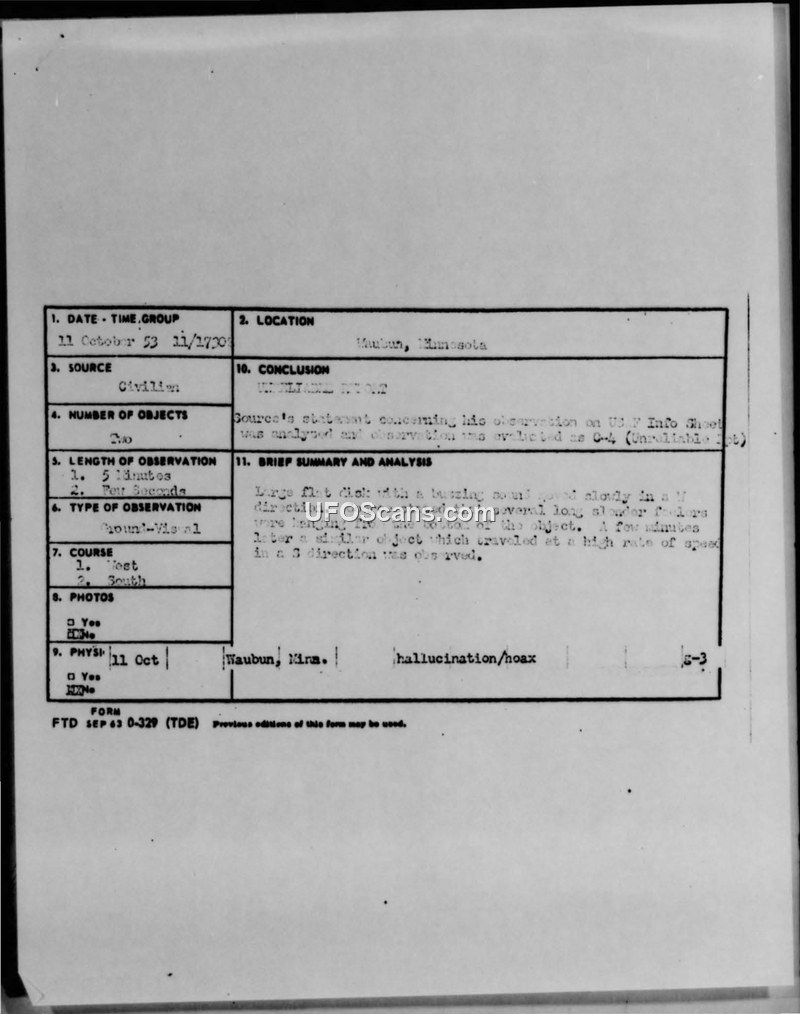 1. DATE - TIME GROUP
11 October 53 11/1730
2. LOCATION
Waubun, Minnesota
3. SOURCE
Civilian
10. CONCLUSION
4. NUMBER OF OBJECTS
Two
Source's statement concerning his observation on Info Sheet
was analyzed and observation was evaluated as C-4 (Unreliable Rpt)
5. LENGTH OF OBSERVATION
1. 5 Minutes
2. Few Seconds
11. BRIEF SUMMARY AND ANALYSIS
Large flat disk with a buzzing sound slowly in a W
several long slender feelers
were hanging from the bottom of the object. A few minutes
later a similar object which traveled at a high rate of speed
in a S direction was observed.
UFOScans.com
6. TYPE OF OBSERVATION
Ground-Visual
7. COURSE
1. West
2. South
8. PHOTOS
Yes
No
9. PHYSI
11 Oct Waubun, Minn. hallucination/hoax g-3
Yes
No
FORM
FTD SEP 63 0-329 (TDE) Previous editions of this form may be used.